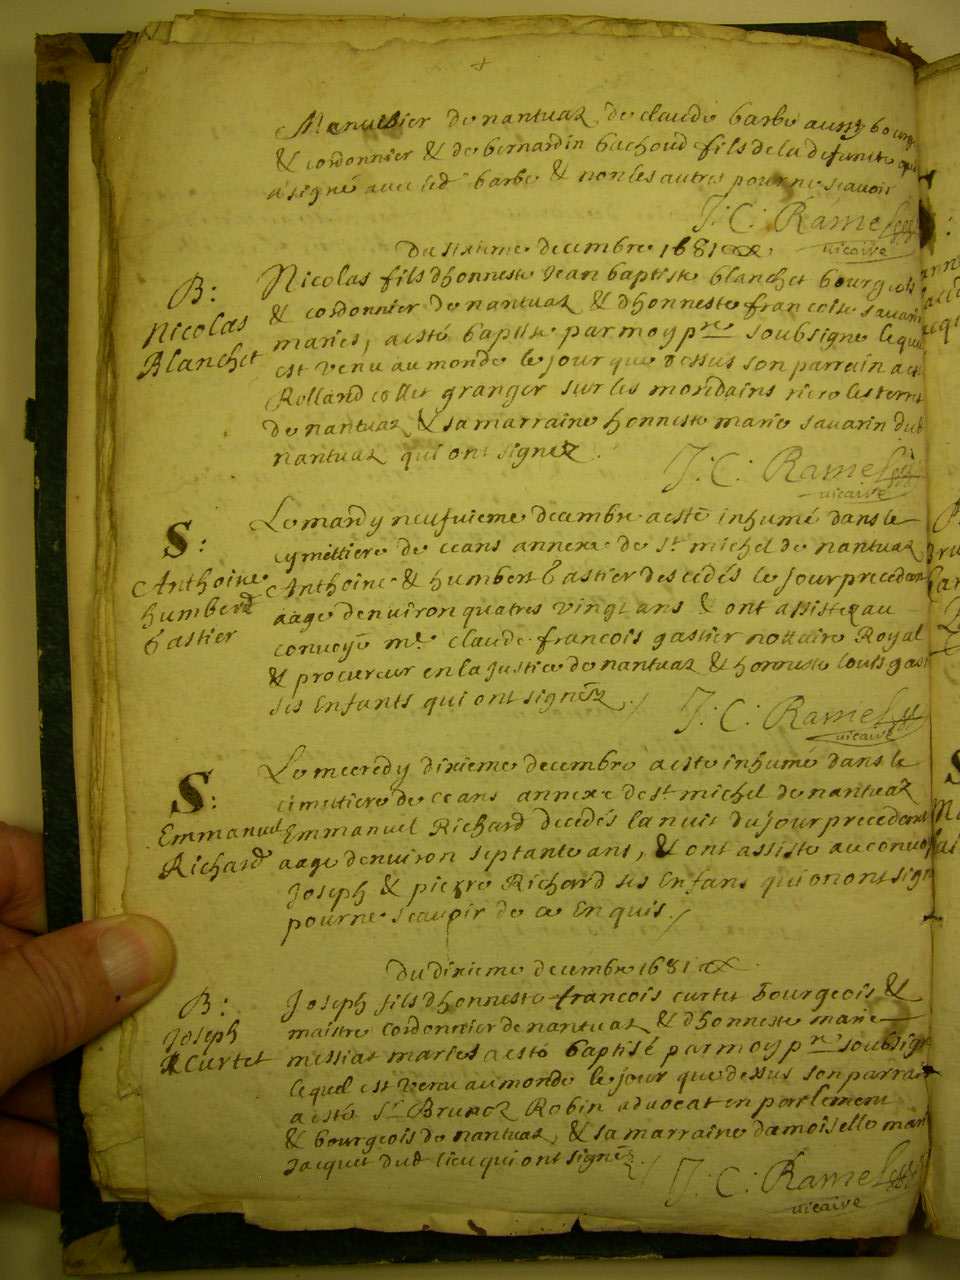 Manuissier de nantuaz de claude barbe aussy bourg
& cordonnier & de bernardin bachoud fils de la defuncte qui
a signé avec led barbe & non les autres pour ne scavoir
J: C: Ramel
vicaire
Du sixieme decembre 1681
B:
Nicolas
Blanchet
Nicolas fils dhonneste Jean baptiste blanchet bourgeois
& cordonnier de nantuaz & dhonneste francoise savarin
maries, a esté baptise par moy pre soubsigne lequel
est venu au monde le jour que dessus son parrain a est
Rolland collet granger sur les mondains riere les terres
de nantuaz & sa marraine honneste marie savarin dud
nantuaz qui ont signez.
J: C: Ramel
vicaire
S:
Anthoine
humberd
Gastier
Le mardy neufuieme decembre a esté inhumé dans le
cymettiere de ceans annexe de st michel de nantuaz
Anthoine & humbert Gastier descedés le jour precedant
aage denuiron quatres vingt ans & ont assistez au
convoye me. claude francois gastier nottaire Royal
& procureur en la justice de nantuaz & honneste louis gast
ses Enfants qui ont signéz./
J: C: Ramel
vicaire
S:
Emmanuel
Richard
Le mecredy dixieme decembre a esté inhumé dans le
cimettiere de ceans annexe de st michel de nantuaz
Emmanuel Richard decedés la nuit du jour precedent
aage denuiron septante ans, & ont assiste au convoy
Joseph & pierre Richard ses Enfans qui ont sign
pour ne scavoir de ce Enquis./
Du dixieme decembre 1681
B:
Joseph
Curtet
Joseph fils dhonneste francois curtet Bourgeois &
maitre Cordonnier de nantuaz & dhonneste marie
messiat maries a esté baptisé par moy pre soubsigne
lequel est venu au monde le jour que dessus son parrain
a estés sr Brunoz Robin advocat en parlement
& bourgeois de nantuaz, & sa marraine damoiselle mari
Jacquet dud lieu qui ont signéz./
J: C: Ramel
vicaire